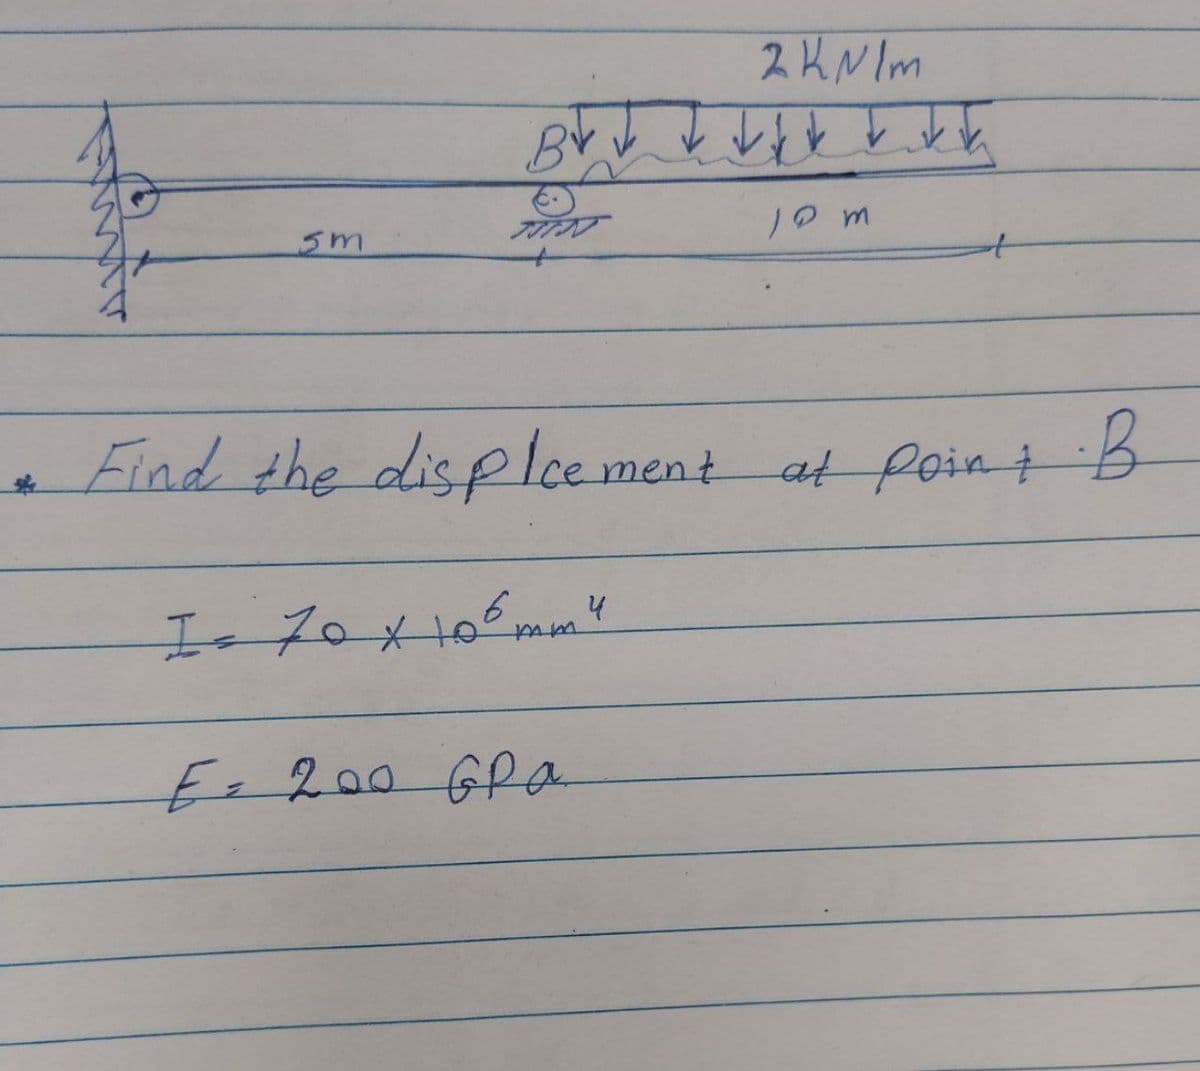 2KN/m
B
5m
10 m
* Find the displcement at point B
I = 70 x 10⁶ mm⁴
E = 200 GPa